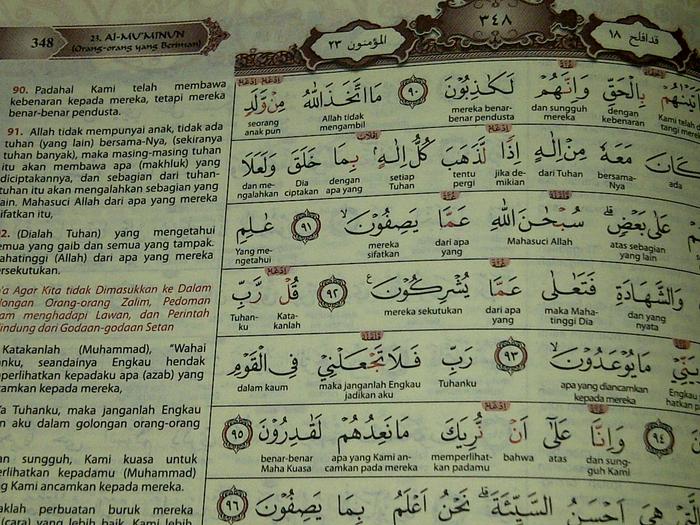 348
23. Al-MU'MINUN
(Orang-orang yang Beriman)
المؤمنون ٢٣
٣٤٨
قد افلح ١٨
90. Padahal Kami telah membawa
kebenaran kepada mereka, tetapi mereka
benar-benar pendusta.
91. Allah tidak mempunyai anak, tidak ada
tuhan (yang lain) bersama-Nya, (sekiranya
tuhan banyak), maka masing-masing tuhan
itu akan membawa apa (makhluk) yang
diciptakannya, dan sebagian dari tuhan-
tuhan itu akan mengalahkan sebagian yang
lain. Mahasuci Allah dari apa yang mereka
sifatkan itu,
(Dialah Tuhan) yang mengetahui
semua yang gaib dan semua yang tampak.
Mahatinggi (Allah) dari apa yang mereka
persekutukan.
Agar Kita tidak Dimasukkan ke Dalam
Orang-orang Zalim, Pedoman
menghadapi Lawan, dan Perintah
dari Godaan-godaan Setan
Katakanlah (Muhammad), "Wahai
seandainya Engkau hendak
kepadaku apa (azab) yang
kepada mereka,
Tuhanku, maka janganlah Engkau
aku dalam golongan orang-orang
sungguh, Kami kuasa untuk
kepadamu (Muhammad)
yang Kami ancamkan kepada mereka.
perbuatan buruk mereka
(cara) yang lebih baik. Kami lebih
بِالْحَقِّ وَاِنَّهُمْ لَكٰذِبُوْنَ ٩٠ مَا اتَّخَذَ اللّٰهُ مِنْ وَّلَدٍ
dengan kebenaran dan sungguh mereka mereka benar-benar pendusta Allah tidak mengambil seorang anak pun
كَانَ مَعَهٗ مِنْ اِلٰهٍ اِذًا لَّذَهَبَ كُلُّ اِلٰهٍۢ بِمَا خَلَقَ وَلَعَلَا
ada bersama-Nya dari Tuhan jika demikian tentu pergi setiap Tuhan dengan apa yang Dia ciptakan dan mengalahkan
عَلٰى بَعْضٍۗ سُبْحٰنَ اللّٰهِ عَمَّا يَصِفُوْنَۙ ٩١ عٰلِمِ
atas sebagian yang lain Mahasuci Allah dari apa yang mereka sifatkan Yang mengetahui
وَالشَّهَادَةِ فَتَعٰلٰى عَمَّا يُشْرِكُوْنَ ࣖ ٩٢ قُلْ رَّبِّ
dan yang nyata maka Maha Tinggi Dia dari apa yang mereka sekutukan Katakanlah Tuhanku
مَا يُوْعَدُوْنَۙ ٩٣ رَبِّ فَلَا تَجْعَلْنِيْ فِى الْقَوْمِ
apa yang diancamkan kepada mereka Tuhanku maka janganlah Engkau jadikan aku dalam kaum
٩٤ وَاِنَّا عَلٰٓى اَنْ نُّرِيَكَ مَا نَعِدُهُمْ لَقٰدِرُوْنَ ٩٥
dan sungguh Kami atas bahwa memperlihatkan padamu apa yang Kami ancamkan pada mereka benar-benar Maha Kuasa
هِيَ اَحْسَنُ السَّيِّئَةَۗ نَحْنُ اَعْلَمُ بِمَا يَصِفُوْنَ ٩٦